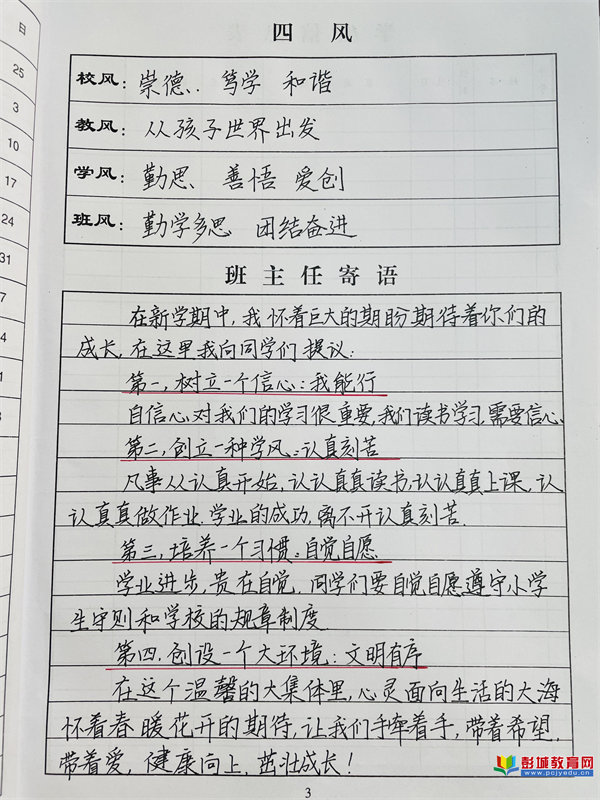 日
25
3
10
17
24
31
7
四风
校风：崇德、笃学 和谐
教风：从孩子世界出发
学风：勤思、善悟 爱创
班风：勤学多思 团结奋进
班主任寄语
在新学期中，我怀着巨大的期盼期待着你们的
成长，在这里我向同学们提议：
第一，树立一个信心：我能行
自信心对我们的学习很重要，我们读书学习，需要信心。
第二，创立一种学风：认真刻苦
凡事从认真开始，认认真真读书，认认真真上课，认
认真真做作业，学业的成功，离不开认真刻苦.
第三，培养一个习惯：自觉自愿
学业进步，贵在自觉，同学们要自觉自愿遵守小学
生守则和学校的规章制度.
第四，创设一个大环境：文明有序
在这个温馨的大集体里，心灵面向生活的大海
怀着春暖花开的期待，让我们手牵着手，带着希望，
带着爱，健康向上，茁壮成长！
3
彭城教育网
www.pcjyedu.cn